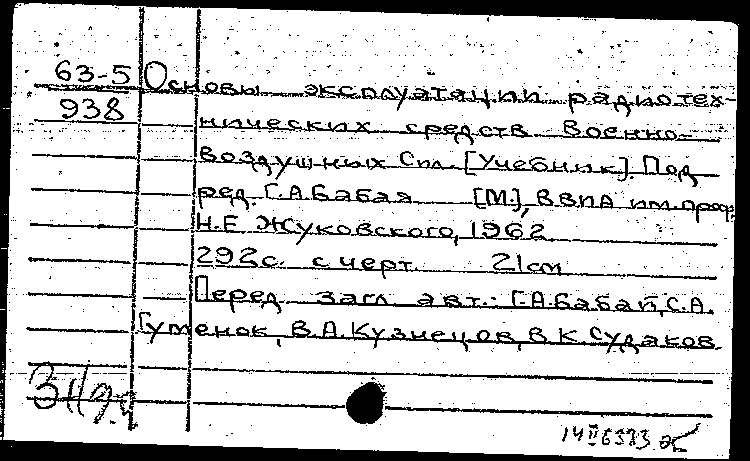 63-5 Основы эксплуатации радиотех-
938 нических средств Военно-
воздушных Сил. [Учебник]. Под
ред. Г.А.Бабая [М.], ВВИА им. проф.
Н.Е Жуковского, 1962
292с. с черт. 21см
Перед загл. авт.: Г.А.Бабай, С.А.
Гутенок, В.А.Кузнецов, В.К.Судаков